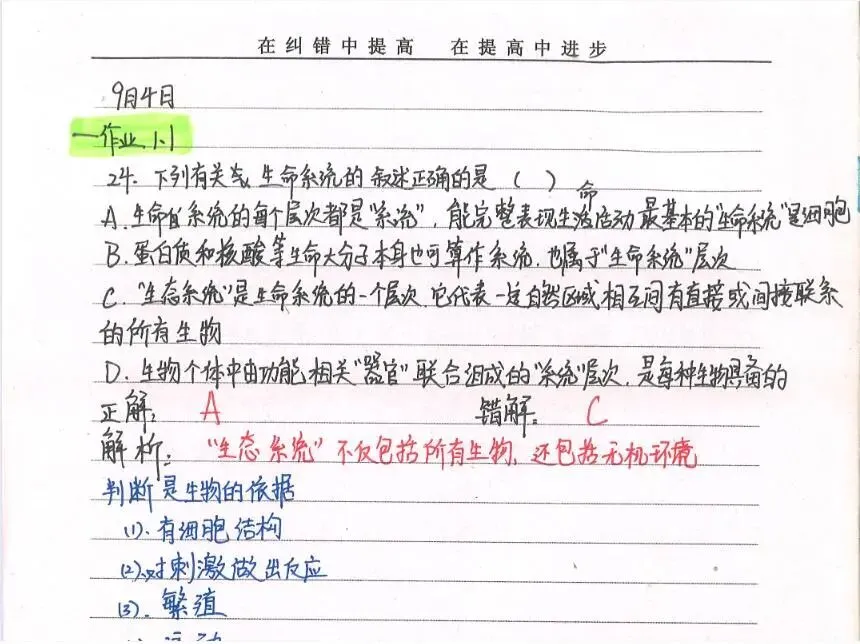 在纠错中提高 在提高中进步
9月4日
一作业1.1
24. 下列有关 生命系统的叙述正确的是（ ）
命
A. 生命 系统的每个层次都是“系统”，能完整表现生活活动最基本的“生命系统”是细胞
B. 蛋白质和核酸等生命大分子本身也可算作系统，也属于“生命系统”层次
C. “生态系统”是生命系统的一个层次，它代表一定自然区域相互间有直接或间接联系
的所有生物
D. 生物个体中由功能相关“器官”联合组成的“系统”层次，是每种生物具备的
正解： A 错解： C
解析：“生态系统”不仅包括所有生物，还包括无机环境
判断是生物的依据
(1). 有细胞结构
(2). 对刺激做出反应
(3). 繁殖